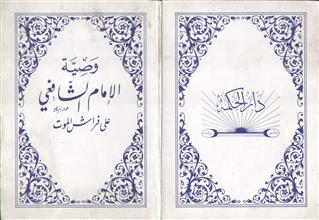 وصية
الإمام الشافعي
على فراش الموت
دار الحكمة